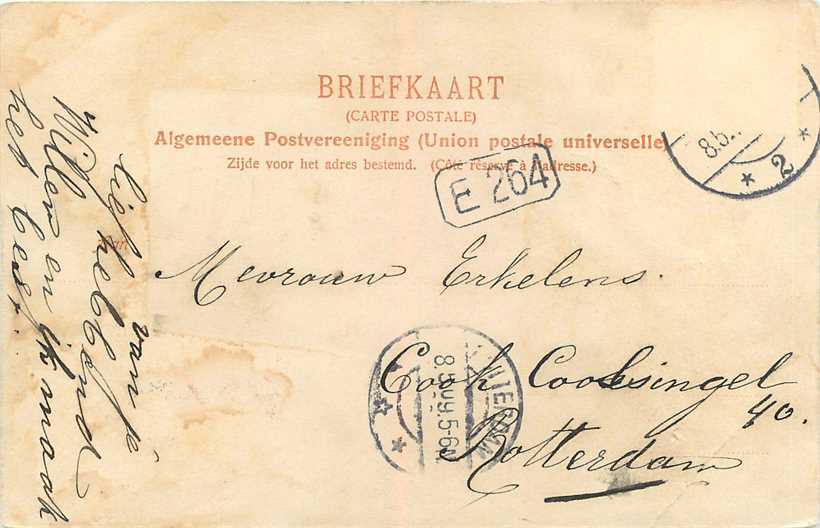 BRIEFKAART
(CARTE POSTALE)
Algemeene Postvereeniging (Union postale universelle)
Zijde voor het adres bestemd. (Côté réservé à l'adresse.)
E 264
8.5.
2
Mevrouw Erkelens.
Cook Coolsingel
40.
Rotterdam
8.5.09.5-6N
van je
lief hebbend
Willen en ik maak
het best.